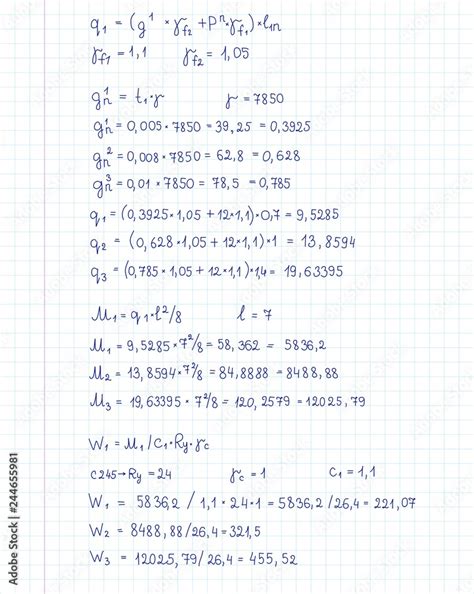 q₁ = (g¹ × γf₂ + Pⁿ × γf₁) × l₁n
γf₁ = 1,1 γf₂ = 1,05
gn¹ = t₁ × γ γ = 7850
gn¹ = 0,005 × 7850 = 39,25 = 0,3925
gn² = 0,008 × 7850 = 62,8 = 0,628
gn³ = 0,01 × 7850 = 78,5 = 0,785
q₁ = (0,3925 × 1,05 + 12 × 1,1) × 0,7 = 9,5285
q₂ = (0,628 × 1,05 + 12 × 1,1) × 1 = 13,8594
q₃ = (0,785 × 1,05 + 12 × 1,1) × 1,4 = 19,63395
M₁ = q₁ × l²/8 l = 7
M₁ = 9,5285 × 7²/8 = 58,362 = 5836,2
M₂ = 13,8594 × 7²/8 = 84,8888 = 8488,88
M₃ = 19,63395 × 7²/8 = 120,2579 = 12025,79
W₁ = M₁/C₁ × Ry × γc
C245 → Ry = 24 γc = 1 C₁ = 1,1
W₁ = 5836,2 / 1,1 × 24 × 1 = 5836,2 / 26,4 = 221,07
W₂ = 8488,88 / 26,4 = 321,5
W₃ = 12025,79 / 26,4 = 455,52
Adobe Stock | #244655981